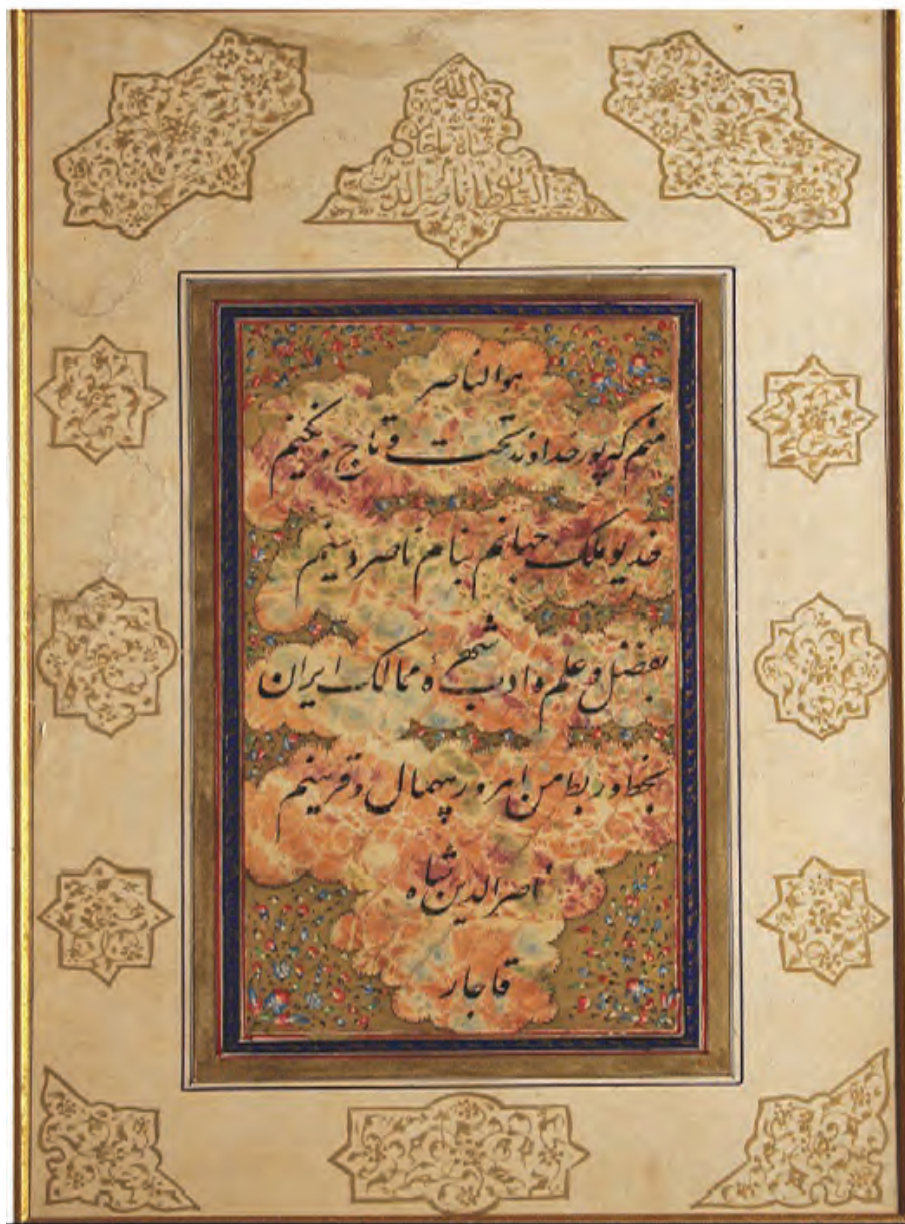 الله
شاه قاجار
السلطان ناصرالدین
هوالناصر
منم که پور خداوند تخت و تاج و نگینم
خدیو ملک جهانم بنام ناصر دینم
بفضل و علم و ادب شهره ممالک ایران
بخط و ربط من امروز بیهمال و قرینم
ناصرالدین شاه
قاجار